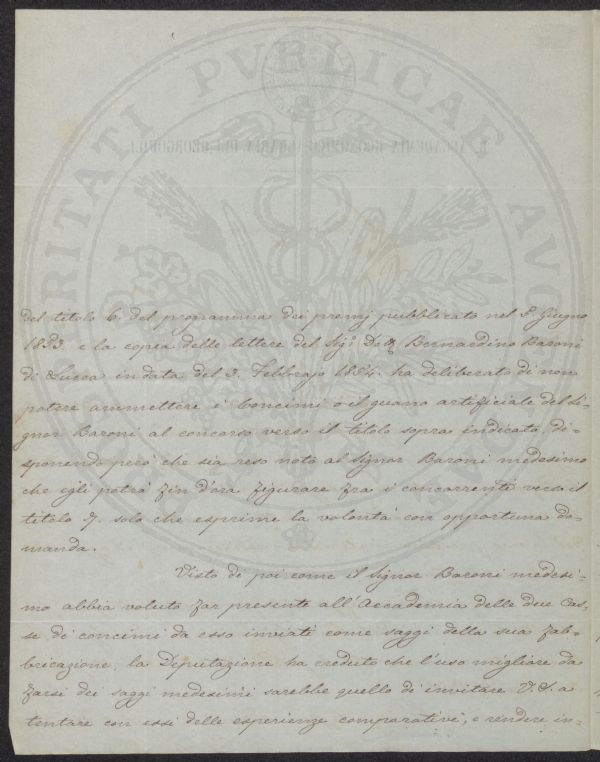 PROSPERITATI PVBLICAE AVGENDAE
R. ACCADEMIA ECONOMICO-AGRARIA DEI GEORGOFILI
del titolo 6. del programma dei premj pubblicato nel P. Giugno
1853. e la copia delle lettere del Sigr. Bernardino Baroni
di Lucca in data del 3. Febbrajo 1854. ha deliberato di non
potere ammettere i Concimi o il guano artificiale del Si=
gnor Baroni al concorso verso il titolo sopra indicato, di=
sponendo però che sia reso noto al Signor Baroni medesimo
che egli potrà fin d'ora figurare fra i concorrenti verso il
titolo 7. solo che esprime la volontà con opportuna do=
manda.
Visto di poi come il Signor Baroni medesi=
mo abbia voluto far presente all'Accademia delle due Cas=
se di concimi da esso inviati come saggi della sua fab=
bricazione, la Deputazione ha creduto che l'uso migliore da
farsi dei saggi medesimi sarebbe quello di invitare V.S. a
tentare con essi delle esperienze comparative, e rendere in=